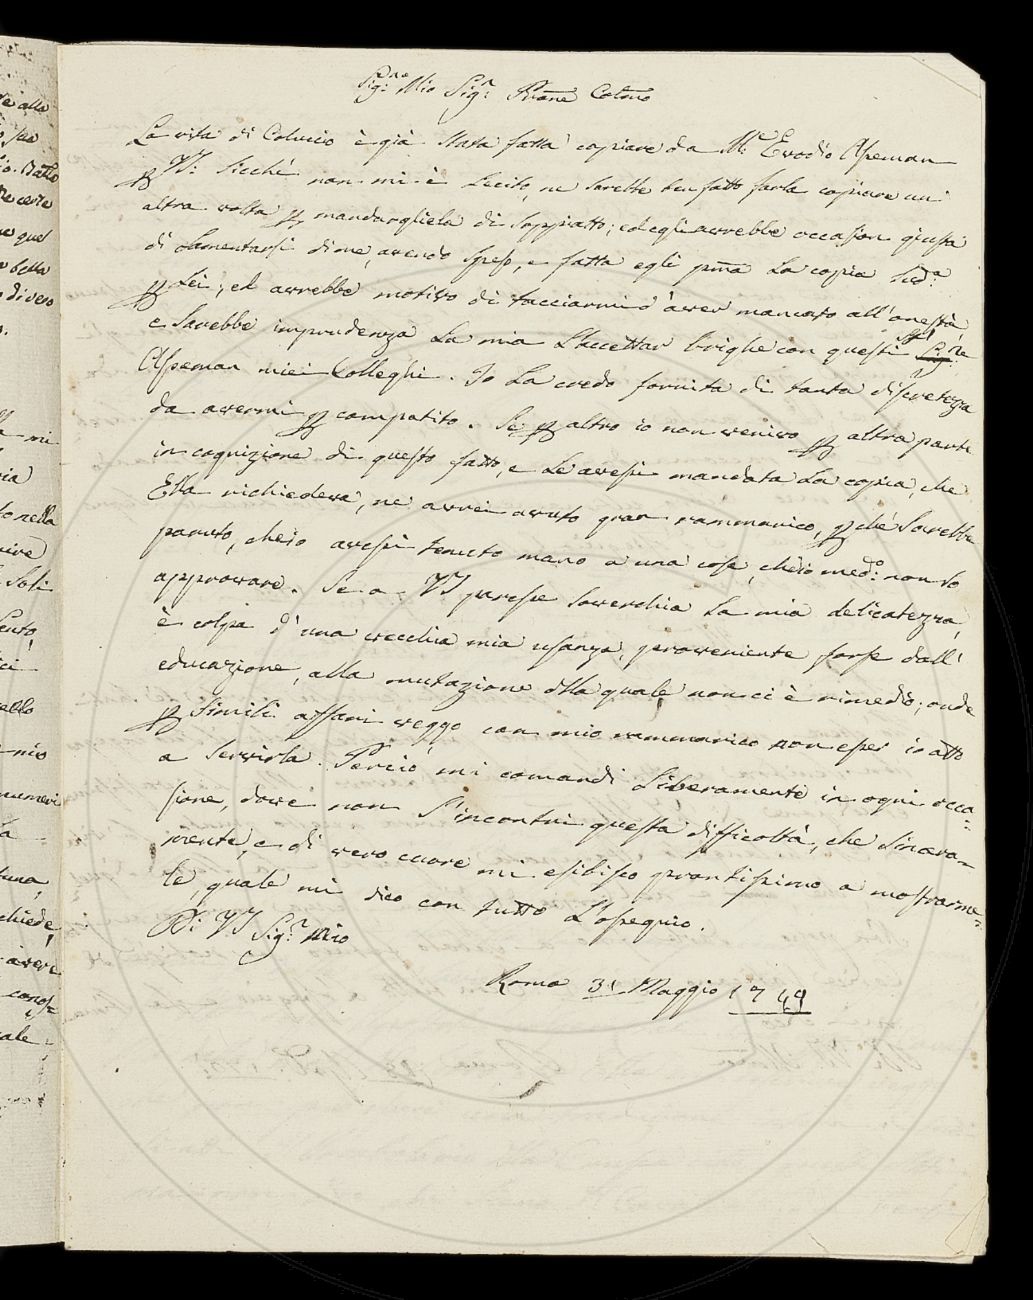 Sig.re Mio Sig.r Prone Colmo
La vita di Coluccio è già stata fatta copiare da M.r Evodio Asseman
p VS: sicchè non mi è lecito, ne sarebbe ben fatto farla copiare un'
altra volta p mandargliela di soppiatto; ed egli avrebbe occasion giusta
di lamentarsi di me, avendo speso, e fatta egli pma la copia sud.a
p Lei; ed avrebbe motivo di tacciarmi d'aver mancato all'onestà,
e sarebbe imprudenza la mia l'accettar brighe con questi SS.ri
Asseman miei Colleghi. Io la credo fornita di tanta discretezza
da avermi p compatito. Se p altro io non venivo p altra parte
in cognizione di questo fatto, e le avessi mandata la copia, che
Ella richiedeva, ne avrei avuto gran rammarico, pchè sarebbe
paruto, che io avessi tenuto mano a una cosa, ch'io med.o non so
approvare. Se a VS paresse soverchia la mia delicatezza,
è colpa d'una vecchia mia usanza, proveniente forse dall'
educazione, alla mutazione della quale non ci è rimedio; onde
p simili affari veggo con mio rammarico non esser io atto
a servirla. Perciò mi comandi liberamente in ogni occa=
sione, dove non s'incontri questa difficoltà, che sincera=
mente, e di vero cuore mi esibisco prontissimo a mostrarme=
le, quale mi dico con tutto l'ossequio.
Di VS Sig.r Mio
Roma 31 Maggio 1749
re alla
Natto
Re certe
quel
bella
di vero
mi
ria
to nella
Soli
ello
mio
numeri
la
tuna,
chiede,
avere
conos=
ale